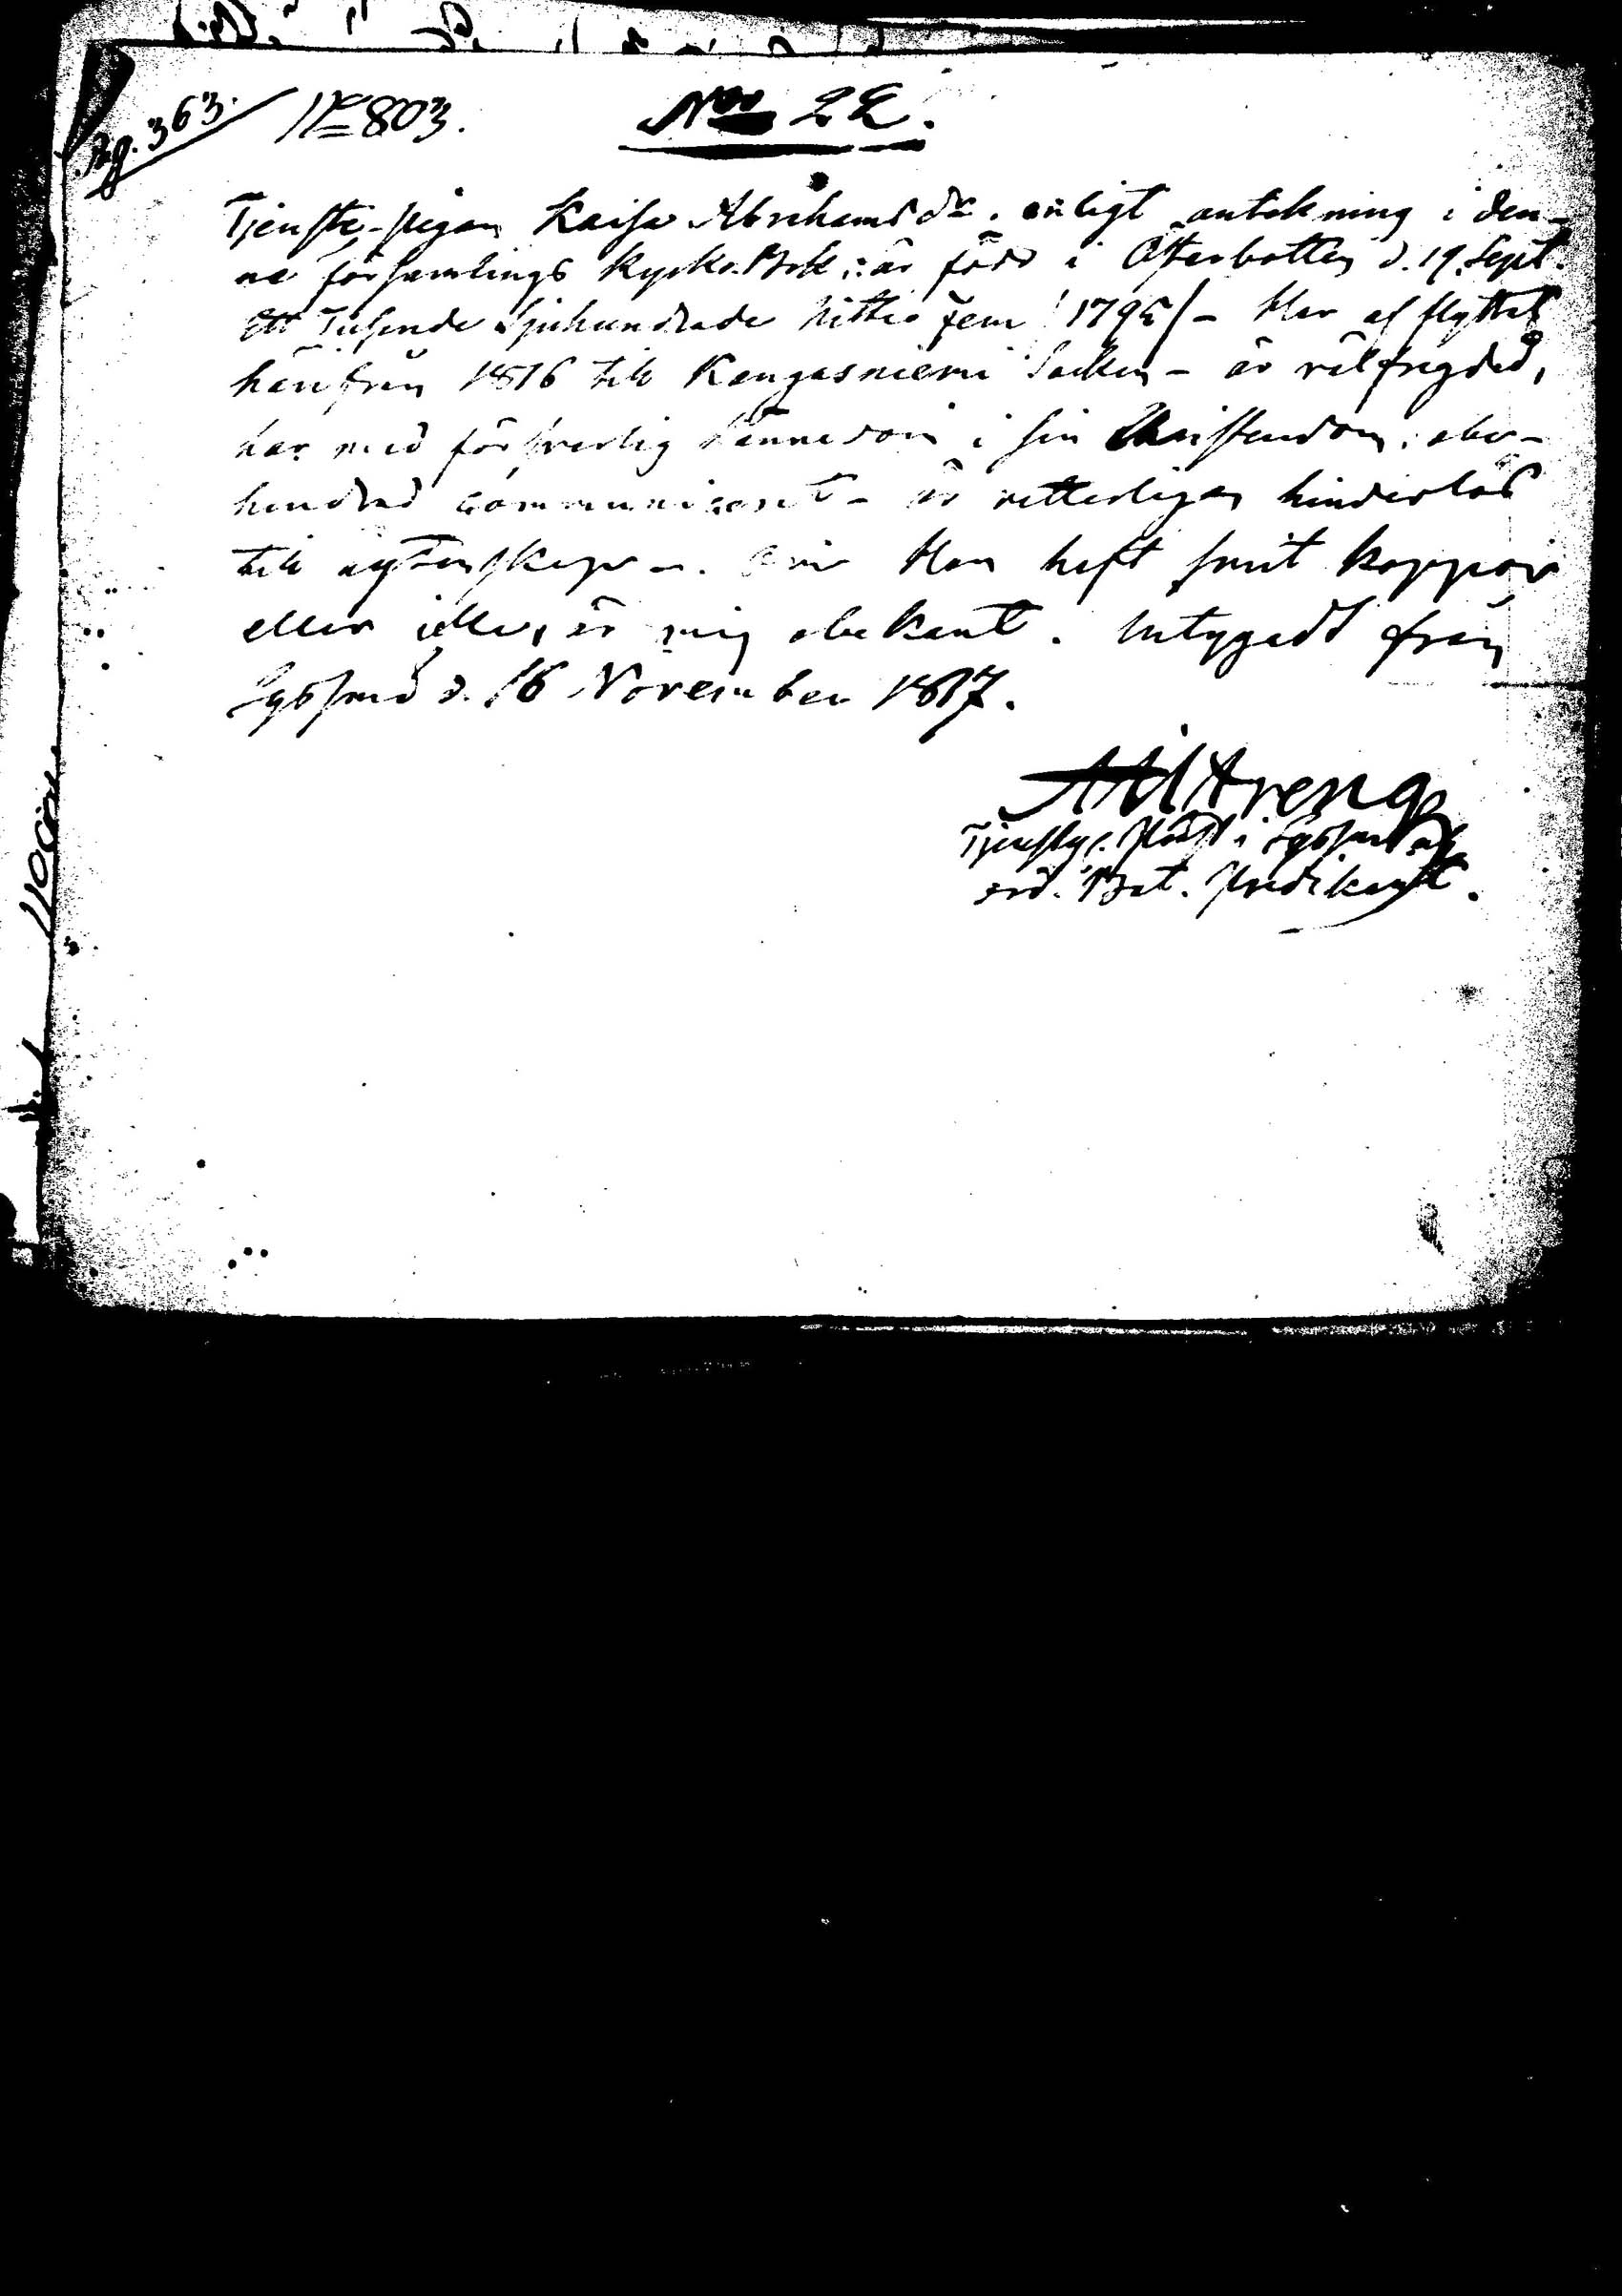 Pg. 363. N 803. No 22.
Tjenste-pigan Kaisa Abrahamsdr. enligt antekning i den-
na församlings Kyrko-Bok: är född i Österbotten d. 19. Sept.
Ett Tusende Sjuhundrade Nittio fem /1795/ - Har afflyttat
härifrån 1816 till Kangasniemi Socken - är välfrägdad,
har med försvarlig kännedom i sin Christendom, obe-
hindrad communicerat - är vetterligen hinderlös
till ägtenskap. Om Hon haft smit koppor
eller icke, är mig obekant. Intygadt från
d. 16 November 1817.
Tjenstg. i
ord. Bat. Predikant.